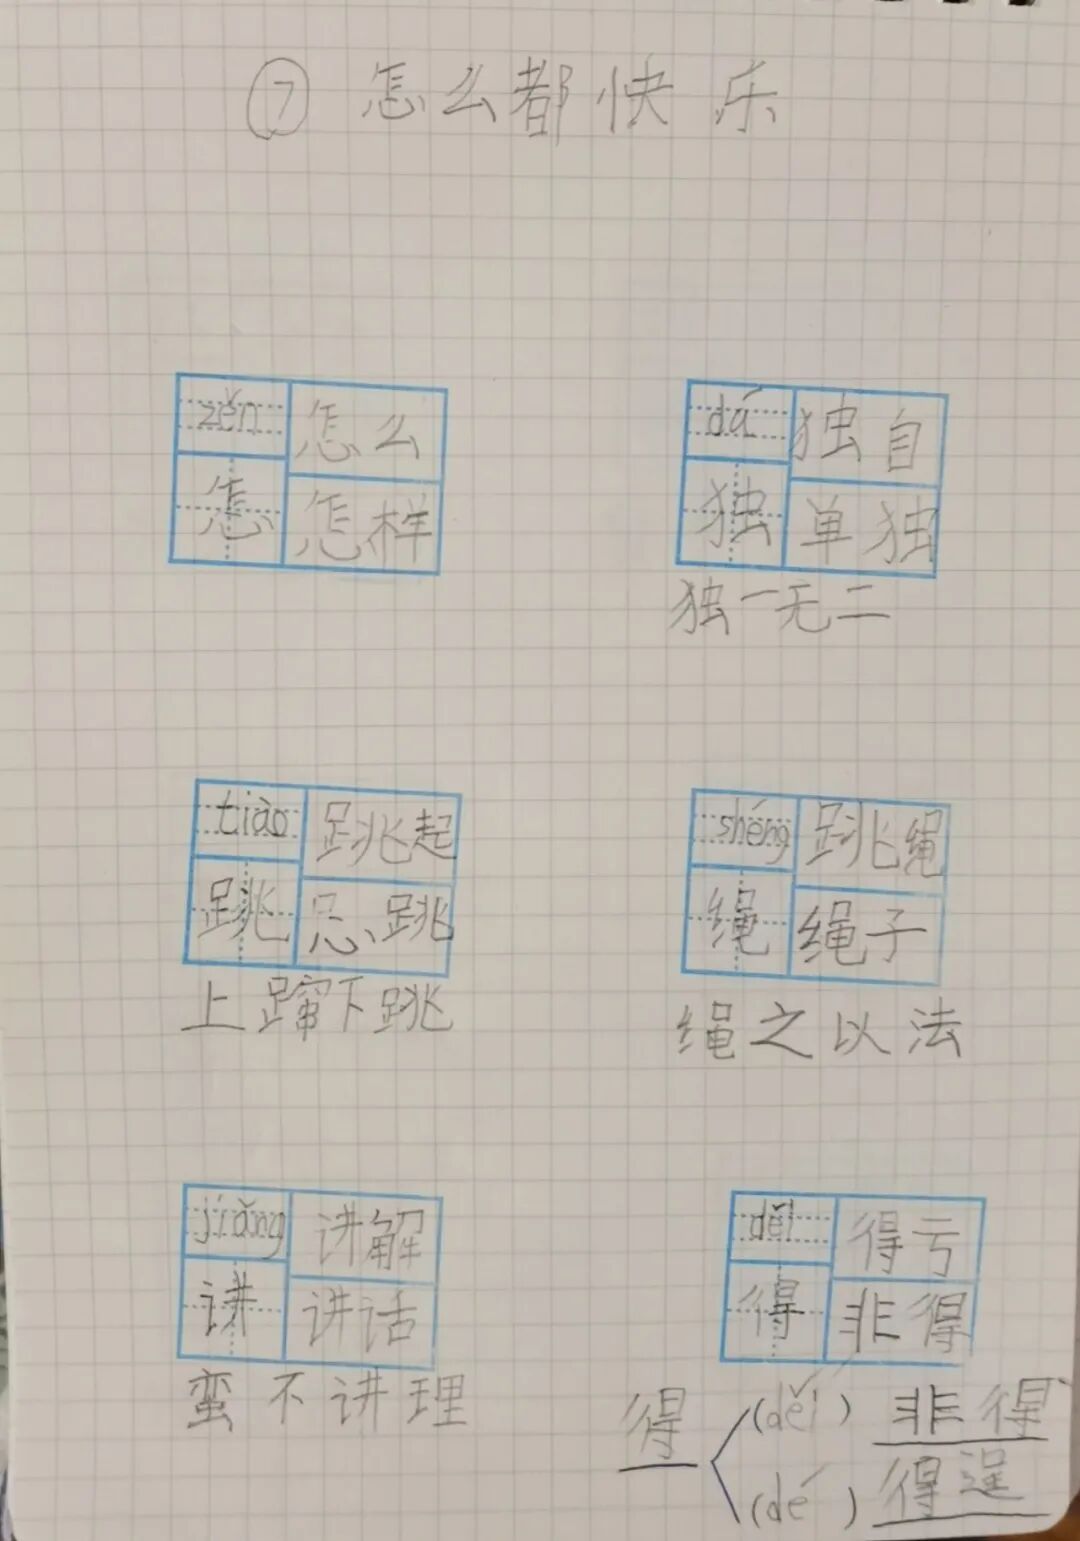 ⑦ 怎么都快乐
zěn 怎么
怎 怎样
dú 独自
独 单独
独一无二
tiào 跳起
跳 忐跳
上蹿下跳
shéng 跳绳
绳 绳子
绳之以法
jiǎng 讲解
讲 讲话
蛮不讲理
děi 得亏
得 非得
得
(děi) 非得
(dé) 得逞